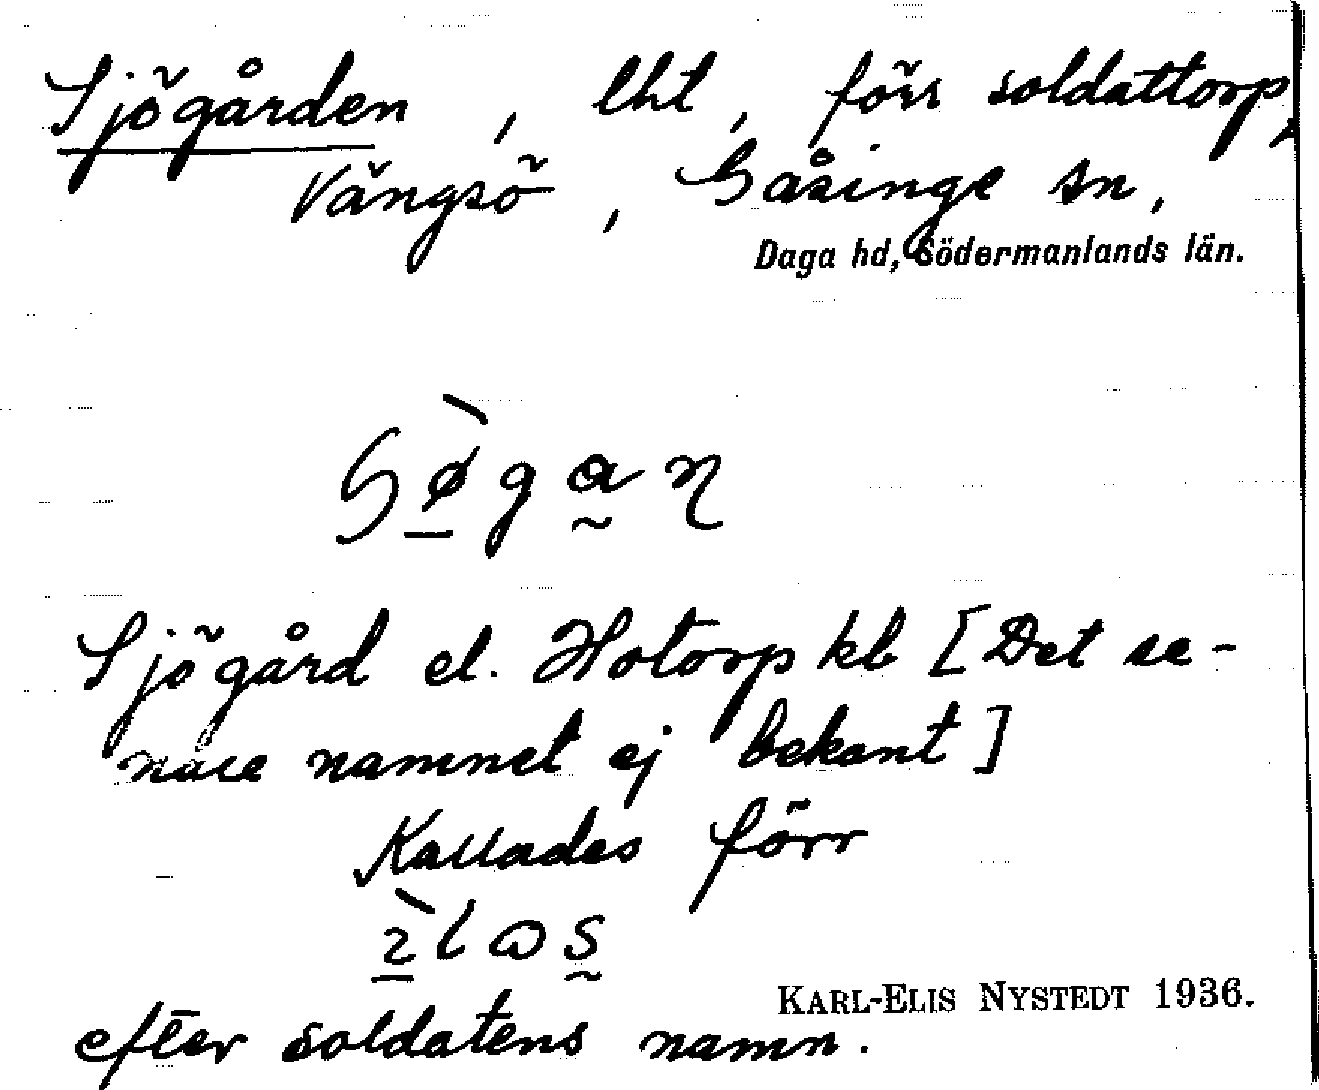 Sjögården, lht, förr soldattorp,
Vängsö, Gåsinge sn,
Daga hd, Södermanlands län.
Sjögård el. Hotorp kb [Det se-
nare namnet ej bekant]
Kallades förr
efter soldatens namn.
KARL-ELIS NYSTEDT 1936.